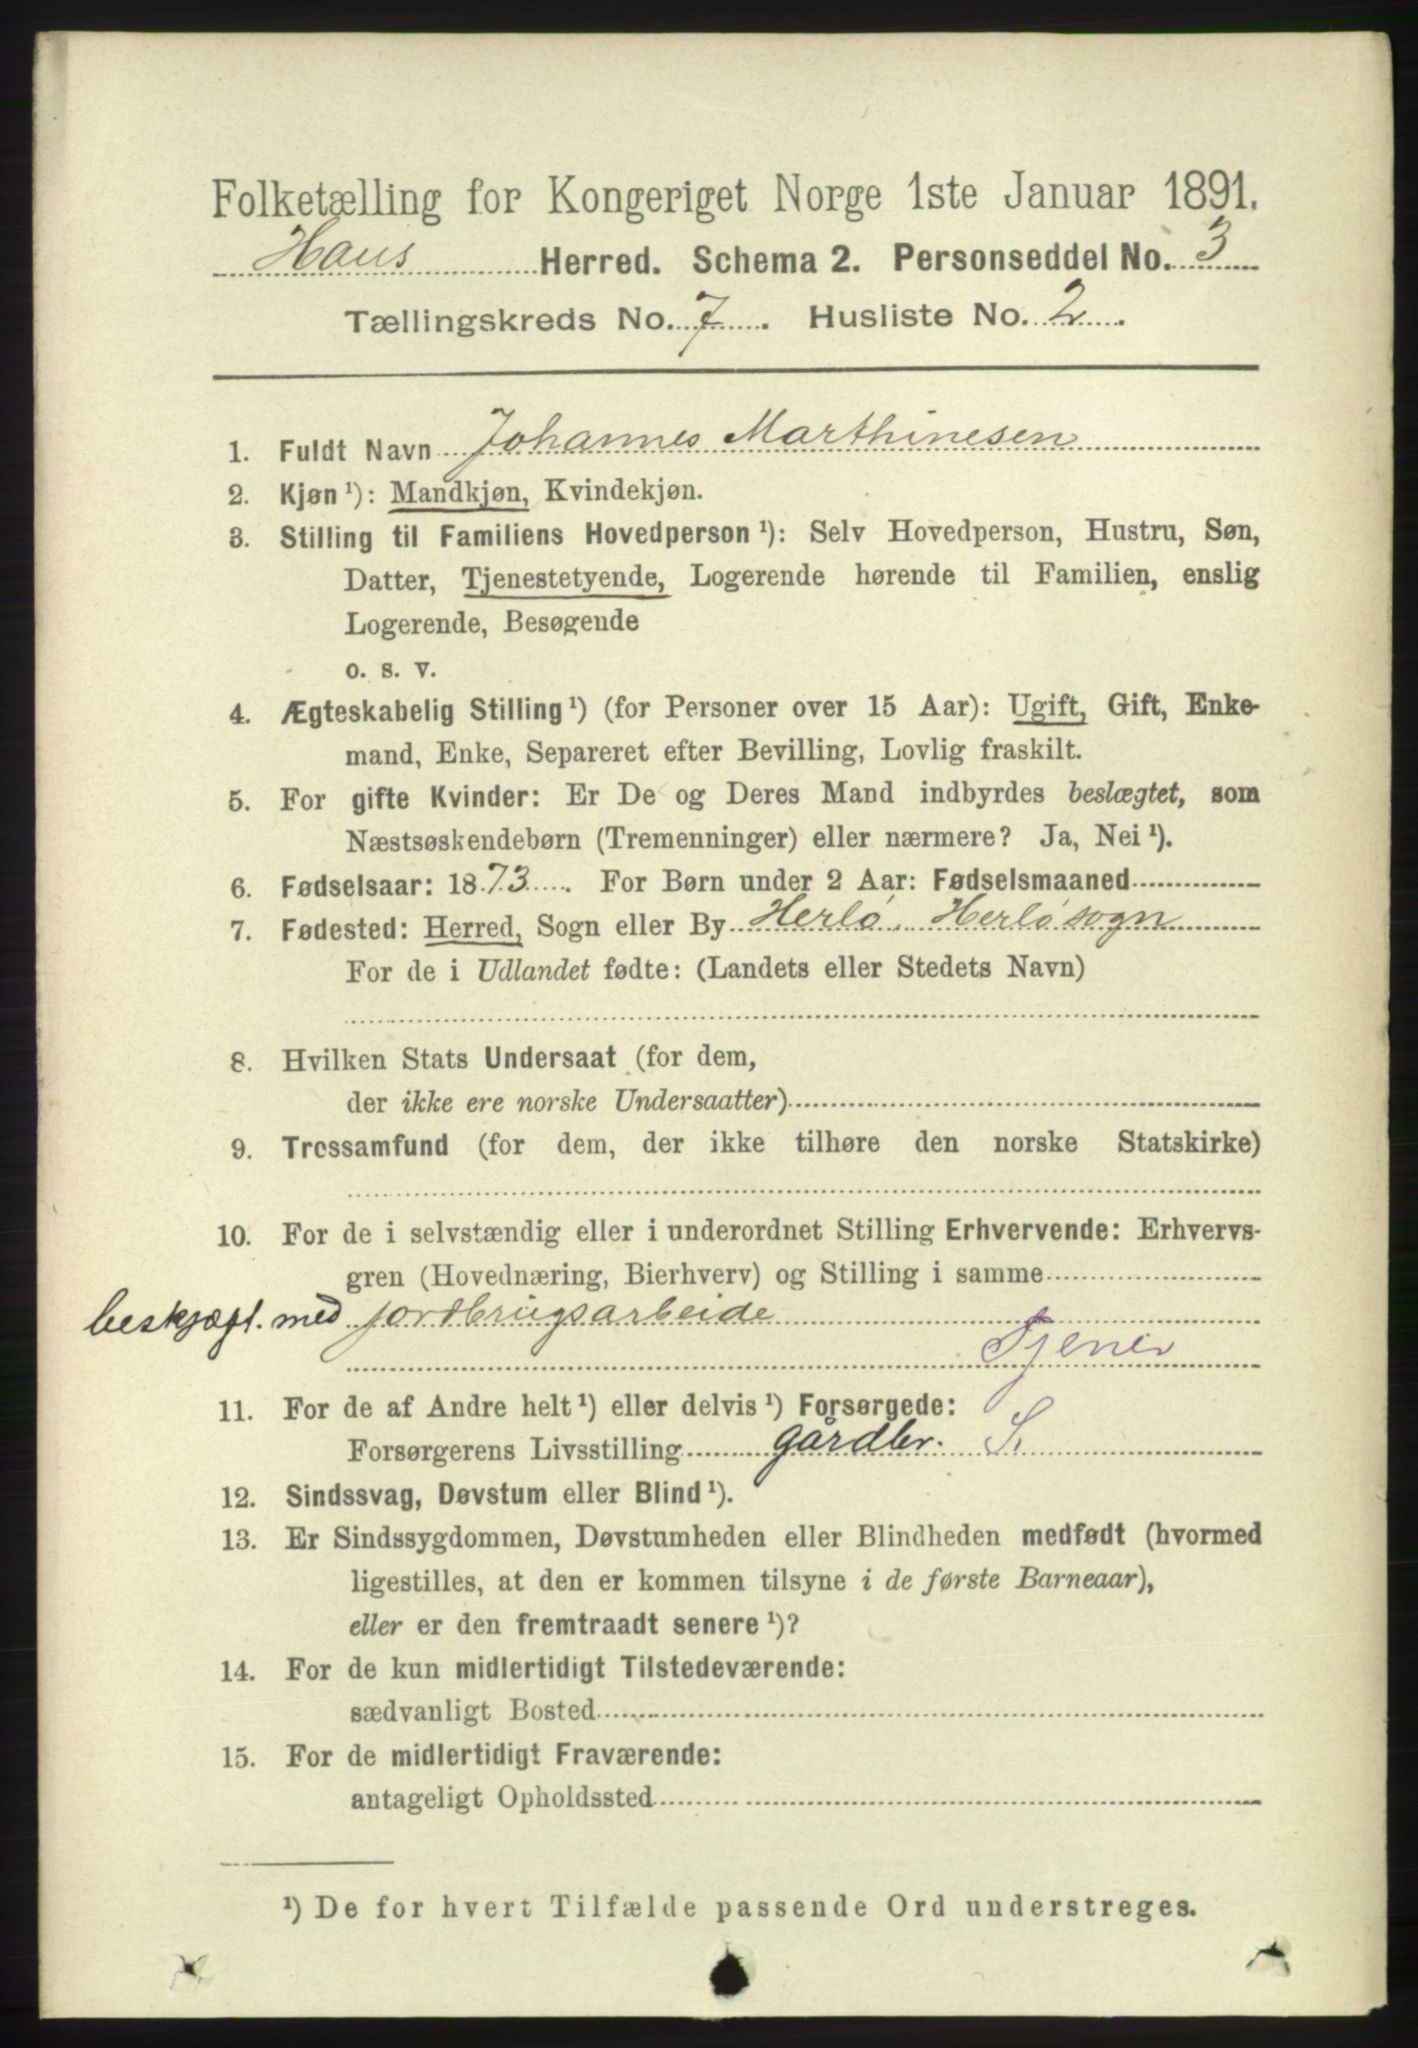 Folketælling for Kongeriget Norge 1ste Januar 1891.
Haus Herred. Schema 2. Personseddel No. 3
Tællingskreds No. 7. Husliste No. 2.
1. Fuldt Navn Johannes Marthinesen
2. Kjøn ¹): Mandkjøn, Kvindekjøn.
3. Stilling til Familiens Hovedperson ¹): Selv Hovedperson, Hustru, Søn,
Datter, Tjenestetyende, Logerende hørende til Familien, enslig
Logerende, Besøgende
o. s. v.
4. Ægteskabelig Stilling ¹) (for Personer over 15 Aar): Ugift, Gift, Enke-
mand, Enke, Separeret efter Bevilling, Lovlig fraskilt.
5. For gifte Kvinder: Er De og Deres Mand indbyrdes beslægtet, som
Næstsøskendebørn (Tremenninger) eller nærmere? Ja, Nei ¹).
6. Fødselsaar: 1873. For Børn under 2 Aar: Fødselsmaaned
7. Fødested: Herred, Sogn eller By Herlø, Herløsogn
For de i Udlandet fødte: (Landets eller Stedets Navn)
8. Hvilken Stats Undersaat (for dem,
der ikke ere norske Undersaatter)
9. Trossamfund (for dem, der ikke tilhøre den norske Statskirke)
10. For de i selvstændig eller i underordnet Stilling Erhvervende: Erhvervs-
gren (Hovednæring, Bierhverv) og Stilling i samme
beskjæft. med jordbrugsarbeide
Tjener
11. For de af Andre helt ¹) eller delvis ¹) Forsørgede:
Forsørgerens Livsstilling gårdbr. S.
12. Sindssvag, Døvstum eller Blind ¹).
13. Er Sindssygdommen, Døvstumheden eller Blindheden medfødt (hvormed
ligestilles, at den er kommen tilsyne i de første Barneaar),
eller er den fremtraadt senere ¹)?
14. For de kun midlertidigt Tilstedeværende:
sædvanligt Bosted
15. For de midlertidigt Fraværende:
antageligt Opholdssted
¹) De for hvert Tilfælde passende Ord understreges.